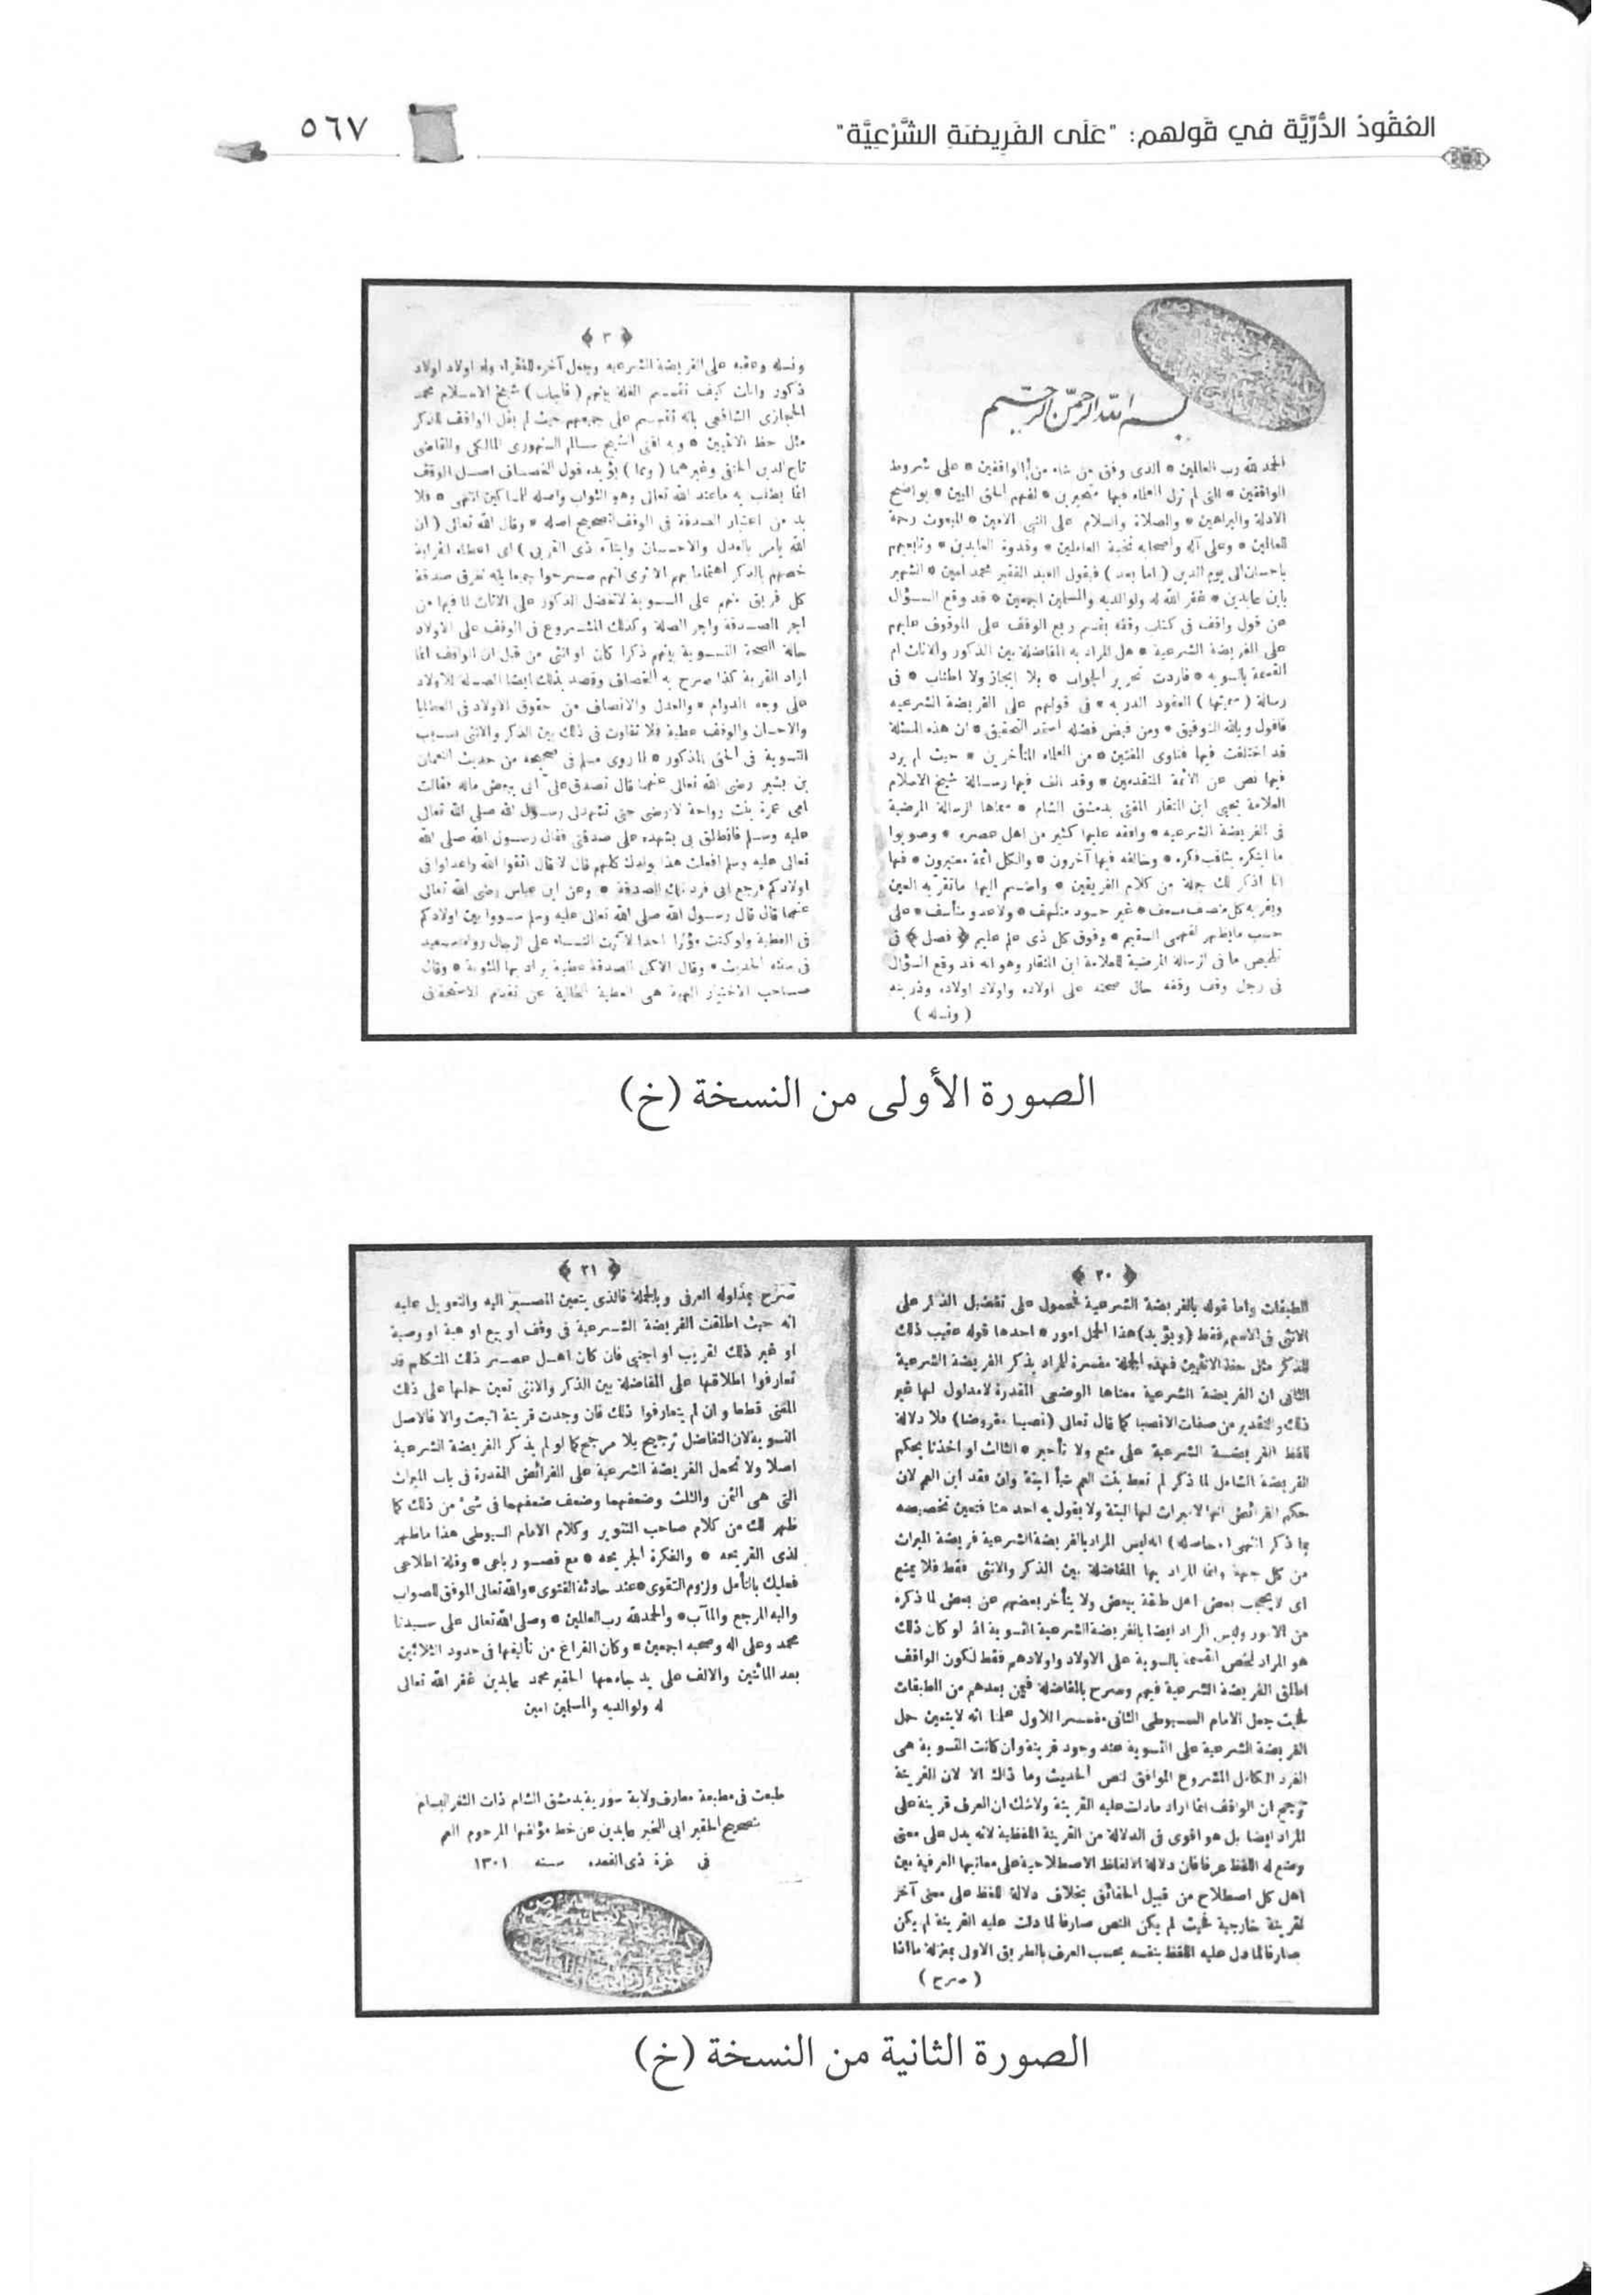 العُقُودُ الدُّرِّيَّة في قَولهم: "عَلَى الفَرِيضَةِ الشَّرْعِيَّة"
٥٦٧
بسم الله الرحمن الرحيم
الحمد لله رب العالمين * الذى وفق من شاء من الواقفين * على شروط
الواقفين * التى لم تزل العلماء فيها متحيرين * لفهم الحق المبين * بواضح
الادلة والبراهين * والصلاة والسلام على النبى الامين * المبعوث رحمة
للعالمين * وعلى آله واصحابه نخبة العاملين * وقدوة العابدين * وتابعيهم
باحسان الى يوم الدين ( اما بعد ) فيقول العبد الفقير محمد امين * الشهير
بابن عابدين * غفر الله له ولوالديه والمسلمين اجمعين * قد وقع السؤال
عن قول واقف فى كتاب وقفه يقسم ريع الوقف على الموقوف عليهم
على الفريضة الشرعية * هل المراد به المفاضلة بين الذكور والاناث ام
القسمة بالسويه * فاردت تحرير الجواب * بلا ايجاز ولا اطناب * فى
رسالة ( سميتها ) العقود الدريه * فى قولهم على الفريضة الشرعيه
فاقول وبالله التوفيق * ومن فيض فضله استمد التحقيق * ان هذه المسئلة
قد اختلفت فيها فتاوى المفتين * من العلماء المتأخرين * حيث لم يرد
فيها نص عن الائمة المتقدمين * وقد الف فيها رسالة شيخ الاسلام
العلامة يحيى ابن المنقار المفتى بدمشق الشام * سماها الرسالة المرضية
فى الفريضة الشرعيه * وافقه عليها كثير من اهل عصره * وصوبوا
ما ابتكره بثاقب فكره * وخالفه فيها آخرون * والكل ائمة معتبرون * فها
انا اذكر لك جملة من كلام الفريقين * واضم اليها ماتقر به العين
ويقر به كل منصف مسعف * غير حسود متلهف * ولاعدو متأسف * على
حسب مايظهر لفهمى السقيم * وفوق كل ذى علم عليم ﴿ فصل ﴾ فى
تلخيص ما فى الرسالة المرضية للعلامة ابن المنقار وهو انه قد وقع السؤال
فى رجل وقف وقفه حال صحته على اولاده واولاد اولاده وذريته
( ونسله )
﴿ ٣ ﴾
ونسله وعقبه على الفريضة الشرعيه وجعل آخره للفقراء وله اولاد اولاد
ذكور واناث كيف تقسم الغلة بينهم ( فاجاب ) شيخ الاسلام محمد
الحجازى الشافعى بانه تقسم على جميعهم حيث لم يقل الواقف للذكر
مثل حظ الانثيين * وبه افتى الشيخ سالم السنهورى المالكى والقاضى
تاج الدين الحنفى وغيرهما ( ومما ) يؤيده قول الخصاف اصل الوقف
انما يطلب به ماعند الله تعالى وهو الثواب واصله للمساكين انتهى * فلا
بد من اعتبار الصدقة فى الوقف لتصحيح اصله * وقال الله تعالى ( ان
الله يأمر بالعدل والاحسان وايتاء ذى القربى ) اى اعطاء القرابة
خصهم بالذكر اهتماما بهم الا ترى انهم صرحوا جميعا بانه تفرق صدقة
كل فريق منهم على السوية لاتفضل الذكور على الاناث لما فيها من
اجر الصدقة واجر الصلة وكذلك المشروع فى الوقف على الاولاد
حالة الصحة التسوية بينهم ذكرا كان او انثى من قبل ان الواقف انما
اراد القربة كذا صرح به الخصاف وقصد بذلك ايضا الصلة للاولاد
على وجه الدوام * والعدل والانصاف من حقوق الاولاد فى العطايا
والاحسان والوقف عطية فلا تفاوت فى ذلك بين الذكر والانثى بسبب
التسوية فى الحق المذكور * لما روى مسلم فى صحيحه من حديث النعمان
بن بشير رضى الله تعالى عنهما قال تصدق علىّ ابى ببعض ماله فقالت
امى عمرة بنت رواحة لا ارضى حتى تشهد لى رسول الله صلى الله تعالى
عليه وسلم فانطلق بى يشهده على صدقتى فقال رسول الله صلى الله
تعالى عليه وسلم افعلت هذا بولدك كلهم قال لا قال اتقوا الله واعدلوا فى
اولادكم فرجع ابى فرد تلك الصدقة * وعن ابن عباس رضى الله تعالى
عنهما قال قال رسول الله صلى الله تعالى عليه وسلم سووا بين اولادكم
فى العطية ولو كنت مؤثرا احدا لآثرت النساء على الرجال رواه سعيد
فى سننه الحديث * وقال الاكمل الصدقة عطية يراد بها المثوبة * وقال
صاحب الاختيار الهبة هى العطية الخالية عن تقدم الاستحقاق
الصورة الأولى من النسخة (خ)
﴿ ٢٠ ﴾
الطبقات واما قوله بالفريضة الشرعية فمحمول على تفضيل الذكر على
الانثى فى الاسهم فقط (ويؤيد) هذا الحمل امور * احدها قوله عقيب ذلك
للذكر مثل حظ الانثيين فهذه الجملة مفسرة للمراد بذكر الفريضة الشرعية
الثانى ان الفريضة الشرعية معناها الوضعى المقدرة لامدلول لها غير
ذلك والتقدير من صفات الانصبا كما قال تعالى (نصيبا مفروضا) فلا دلالة
للفظ الفريضة الشرعية على منع ولا تأخير * الثالث لو اخذنا بحكم
الفريضة الشامل لما ذكر لم تعط بنت العم شيأ ابتة وان فقد ابن العم لان
حكم الفرائض انها لاميراث لها البتة ولا يقول به احد هنا فتعين تخصيصه
بما ذكر انتهى (حاصله) انه ليس المراد بالفريضة الشرعية فريضة الميراث
من كل جهة وانما المراد بها المفاضلة بين الذكر والانثى فقط فلا يمنع
اى لا يحجب بعض اهل طبقة ببعض ولا يتأخر بعضهم عن بعض لما ذكره
من الامور وليس المراد ايضا بالفريضة الشرعية التسوية اذ لو كان ذلك
هو المراد لخص القسمة بالسوية على الاولاد واولادهم فقط لكون الواقف
اطلق الفريضة الشرعية فيهم وصرح بالمفاضلة فيمن بعدهم من الطبقات
فحيث جعل الامام السيوطى الثانى مفسرا للاول علمنا انه لا يتعين حمل
الفريضة الشرعية على التسوية عند وجود قرينة وان كانت التسوية هى
الفرد الكامل المشروع الموافق لنص الحديث وما ذاك الا لان القرينة
ترجح ان الواقف انما اراد مادلت عليه القرينة ولاشك ان العرف قرينة على
المراد ايضا بل هو اقوى فى الدلالة من القرينة اللفظية لانه يدل على معنى
وضع له اللفظ عرفا فان دلالة الالفاظ الاصطلاحية على معانيها العرفية بين
اهل كل اصطلاح من قبيل الحقائق بخلاف دلالة اللفظ على معنى آخر
لقرينة خارجية فحيث لم يكن النص صارفا لما دلت عليه القرينة لم يكن
صارفا لما دل عليه اللفظ بنفسه بحسب العرف بالطريق الاولى بمنزلة ما اذا
( صرح )
﴿ ٢١ ﴾
صرح بمدلوله العرفى وبالجملة فالذى يتعين المصير اليه والتعويل عليه
انه حيث اطلقت الفريضة الشرعية فى وقف او بيع او هبة او وصية
او غير ذلك لقريب او اجنبى فان كان اهل عصر ذلك المتكلم قد
تعارفوا اطلاقها على المفاضلة بين الذكر والانثى تعين حملها على ذلك
المعنى قطعا وان لم يتعارفوا ذلك فان وجدت قرينة اتبعت والا فالاصل
التسوية لان التفاضل ترجيح بلا مرجح كما لو لم يذكر الفريضة الشرعية
اصلا ولا تحمل الفريضة الشرعية على الفرائض المقدرة فى باب الميراث
التى هى الثمن والثلث وضعفهما وضعف ضعفهما فى شئ من ذلك كما
ظهر لك من كلام صاحب التنوير وكلام الامام السيوطى هذا ماظهر
لذى القريحه * والفكرة الجريحه * مع قصور باعى * وقلة اطلاعى
فعليك بالتأمل ولزوم التقوى * عند حادثة الفتوى * والله تعالى الموفق للصواب
واليه المرجع والمآب * والحمدلله رب العالمين * وصلى الله تعالى على سيدنا
محمد وعلى اله وصحبه اجمعين * وكان الفراغ من تأليفها فى حدود الثلاثين
بعد المائتين والالف على يد جامعها الحقير محمد عابدين غفر الله تعالى
له ولوالديه والمسلمين امين
طبعت فى مطبعة معارف ولاية سورية بدمشق الشام ذات الثغر البسام
بتصحيح الحقير ابى الخير عابدين عن خط مؤلفها المرحوم العم
فى غرة ذى القعده سنه ١٣٠١
الصورة الثانية من النسخة (خ)